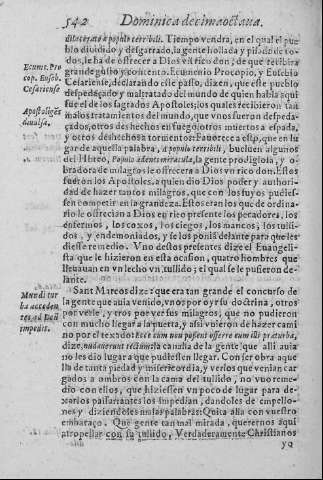 542 Dominica decimaoctaua.
dilacerato a populo terribili. Tiempo vendra, en el qual el pue
blo diuidido y desgarrado, la gente hollada y pisada de to-
dos, le ha de ofrecer a Dios vn rico don; de que recibira
grande gusto y contento. Ecumenio Procopio, y Eusebio
Cesariense, declarando este passo, dizen, que este pueblo
despedaçado y maltratado del mundo de quien habla aqui
fue el de los sagrados Apostoles; los quales recibieron tan
malos tratamientos del mundo, que vnos fueron despeda-
çados, otros deshechos en fuego; otros muertos a espada,
y otros deshechos a tormentos: Fauorece a esto, que en lu
gar de aquella palabra, a populo terribili, bueluen algunos
del Hebreo, Populo edente miracula, la gente prodigiosa, y o-
bradora de milagros le ofrecera a Dios vn rico don. Estos
fueron los Apostoles, a quien dio Dios poder y authori-
dad de hazer tantos milagros, que con los suyos pudies-
sen competir en la grandeza. Estos eran los que de ordina-
rio le ofrecian a Dios en rico presente los pecadores, los
enfermos, los coxos, los ciegos, los mancos, los tulli-
dos, y endemoniados, y se los ponian delante para que les
diesse remedio. Vno destos presentes dize el Euangelis-
ta que le hizieron en esta ocasion, quatro hombres que
lleuauan en vn lecho vn tullido; el qual se le pusieron de-
lante.
Sant Marcos dize: que era tan grande el concurso de
la gente que auia venido, vnos por oyr su doctrina, otros
por verle, y tros por ver sus milagros, que no pudieron
con mucho llegar a la puerta, y assi vuieron de hazer cami
no por el texado:
dize, la canalla de la gente que alli auia
no les dio lugar a que pudiessen llegar. Con ser obra aque
lla de tanta piedad y misericordia, y verlos que venian car-
gados a ombros con la cama del tullido, no vuo reme-
dio con ellos, que hiziessen vn poco de lugar para de-
xarlos passar: antes los impedian, dandoles de empello-
nes y diziendoles malas palabras: Quita alla con vuestro
embaraço. Que gente tan mal mirada, querernos aqui
atropellar con su tullido, Verdaderamente Christianos
yo
Ecume. Pro
cop. Euseb.
Cesariense
Apostoliges
Mundi tur
ba acceden-
tes ad Deũ
impedit.